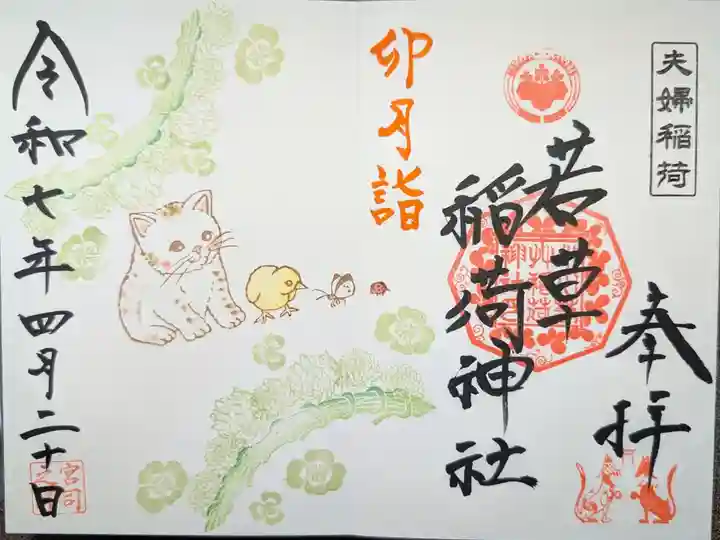 夫婦稲荷
奉拝
若草
稲荷神社
卯月詣
令和七年四月二十日
宮司